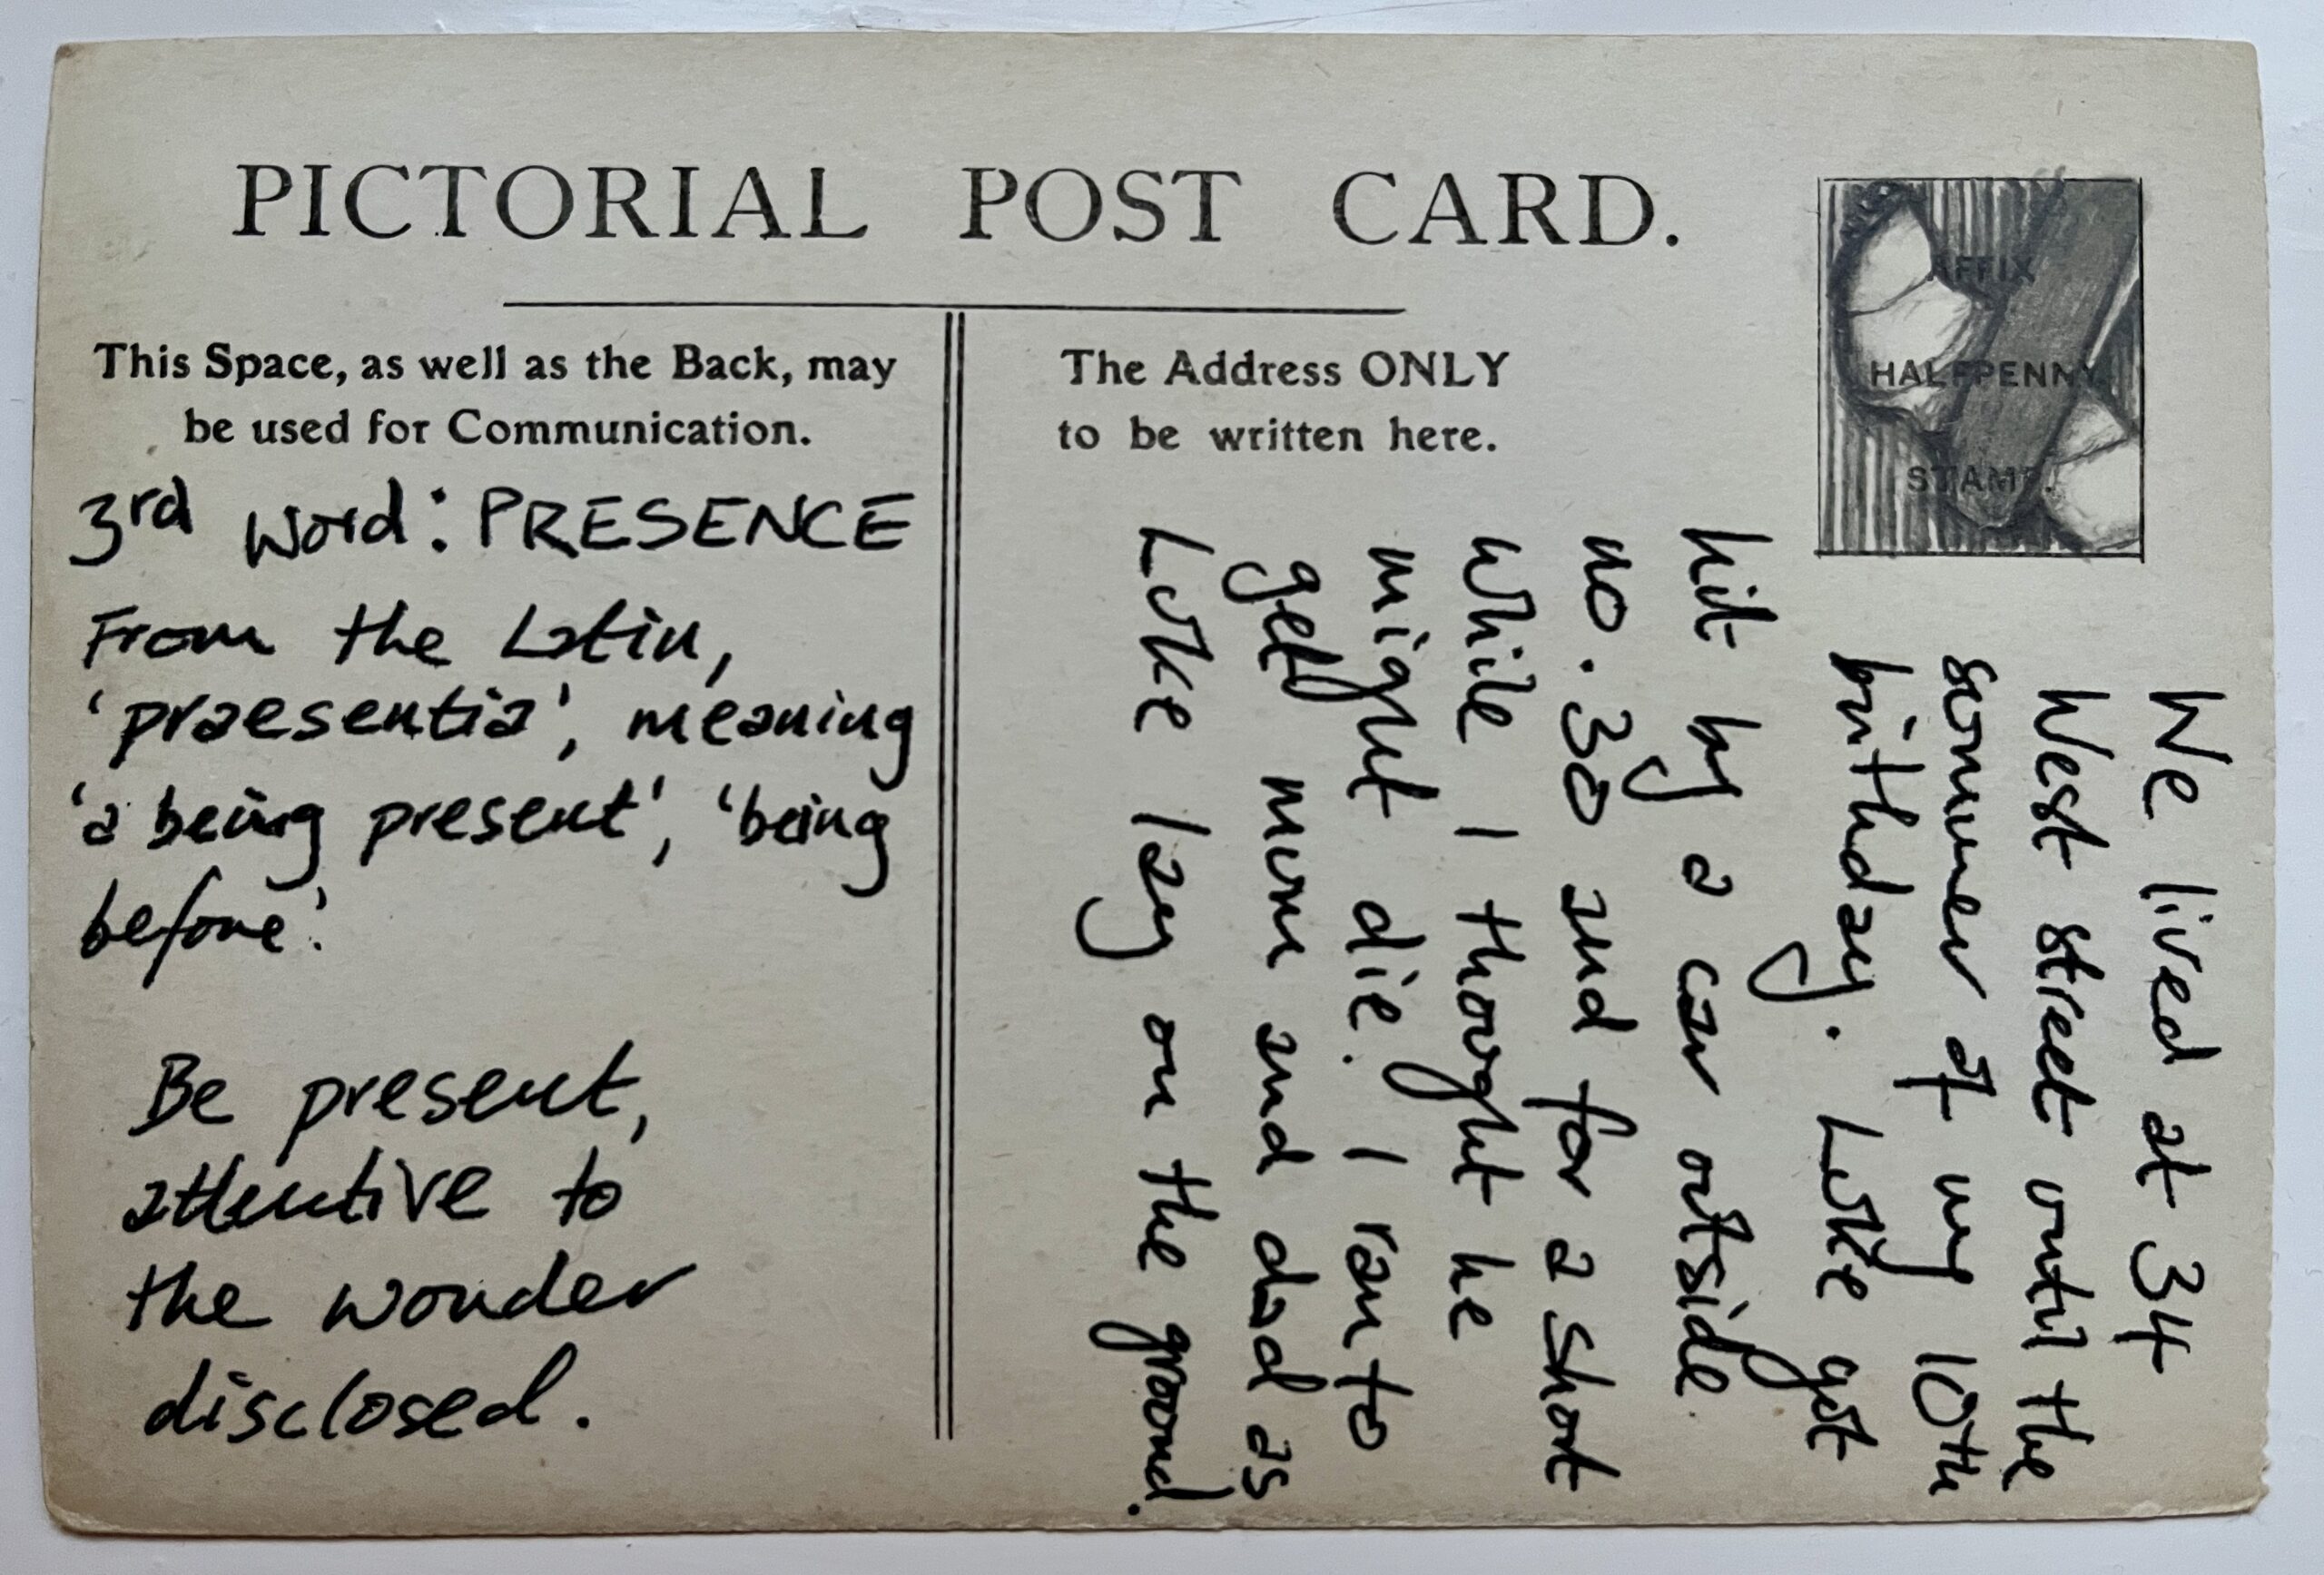 PICTORIAL POST CARD.
AFFIX
HALFPENNY
STAMP.
This Space, as well as the Back, may
be used for Communication.
The Address ONLY
to be written here.
3rd word: PRESENCE
From the Latin,
'praesentia', meaning
'a being present', 'being
before'.
Be present,
attentive to
the wonder
disclosed.
We lived at 34
West street until the
summer of my 10th
birthday. Luke got
hit by a car outside
no. 30 and for a short
while I thought he
might die. I ran to
get mum and dad as
Luke lay on the ground.